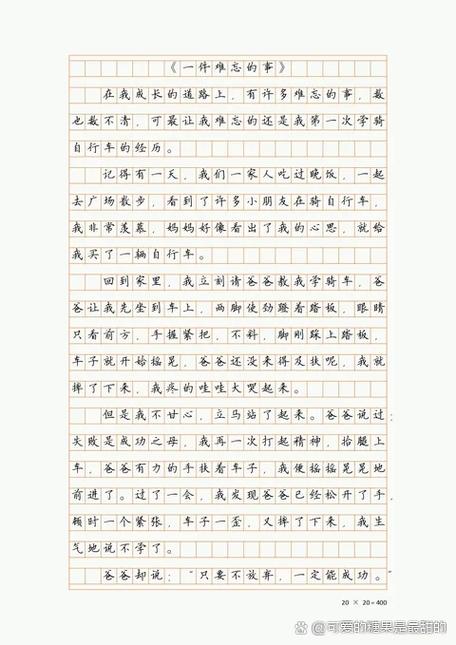 《一件难忘的事》
在我成长的道路上，有许多难忘的事，数
也数不清，可最让我难忘的还是我第一次学骑
自行车的经历。
记得有一天，我们一家人吃过晚饭，一起
去广场散步，看到了许多小朋友在骑自行车，
我非常羡慕，妈妈好像看出了我的心思，就给
我买了一辆自行车。
回到家里，我立刻请爸爸教我学骑车，爸
爸让我先坐到车上，两脚使劲蹬着踏板，眼睛
只看前方，手握紧把，不料，脚刚踩上踏板，
车子就开始摇晃，爸爸还没来得及扶呢，我就
摔了下来，我疼的哇哇大哭起来。
但是我不甘心，立马站了起来。爸爸说过：
失败是成功之母，我再一次打起精神，抬腿上
车，爸爸有力的手扶着车子，我便摇摇晃晃地
前进了。过了一会，我发现爸爸已经松开了手，
顿时一个紧张，车子一歪，又摔了下来，我生
气地说不学了。
爸爸却说：“只要不放弃，一定能成功。”
20 × 20=400
知乎 @可爱的糖果是最甜的